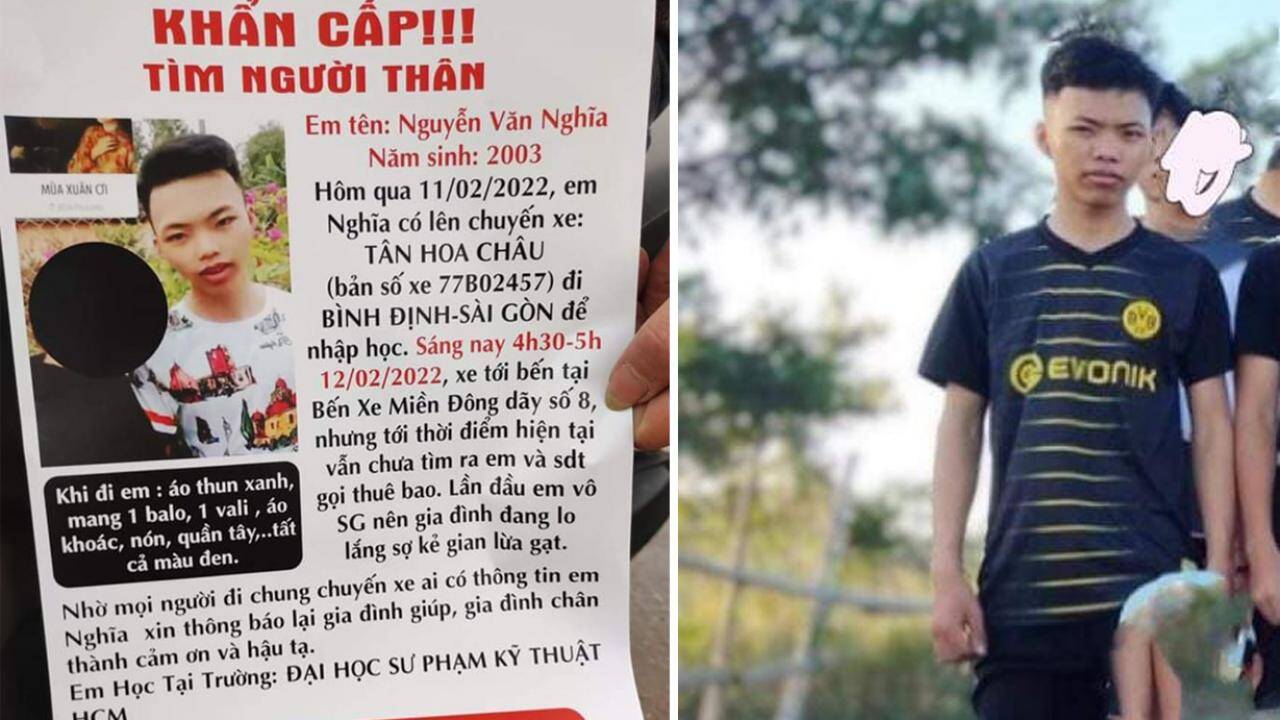 KHẨN CẤP!!!
TÌM NGƯỜI THÂN
MÙA XUÂN ƠI
Em tên: Nguyễn Văn Nghĩa
Năm sinh: 2003
Hôm qua 11/02/2022, em
Nghĩa có lên chuyến xe:
TÂN HOA CHÂU
(bản số xe 77B02457) đi
BÌNH ĐỊNH-SÀI GÒN để
nhập học. Sáng nay 4h30-5h
12/02/2022, xe tới bến tại
Bến Xe Miền Đông dãy số 8,
nhưng tới thời điểm hiện tại
vẫn chưa tìm ra em và sdt
gọi thuê bao. Lần đầu em vô
SG nên gia đình đang lo
lắng sợ kẻ gian lừa gạt.
Khi đi em : áo thun xanh,
mang 1 balo, 1 vali , áo
khoác, nón, quần tây,..tất
cả màu đen.
Nhờ mọi người đi chung chuyến xe ai có thông tin em
Nghĩa xin thông báo lại gia đình giúp, gia đình chân
thành cảm ơn và hậu tạ.
Em Học Tại Trường: ĐẠI HỌC SƯ PHẠM KỸ THUẬT
HCM
BVB
EVONIK